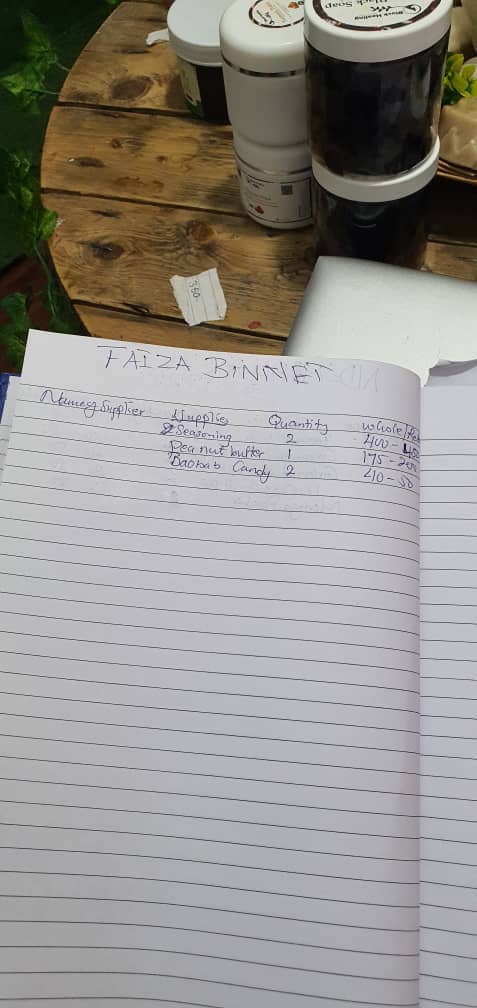 Black Soap
350
FAIZA BINNET
Name of Supplier Supplies Quantity whole/Ret
Seasoning 2 400 - 450
Peanut butter 1 175 - 200
Baobab Candy 2 40 - 50